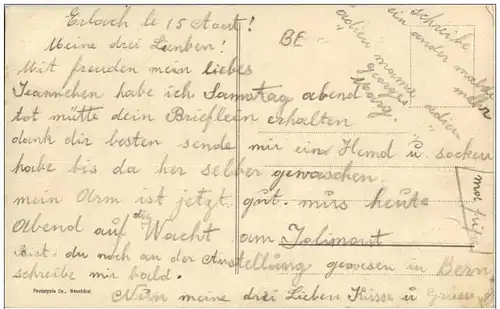 Erlach le 15 Aout!
Meine drei Lieben!
Mit freuden mein liebes
Jeannchen habe ich Samstag abend
tot mütte dein Brieflein erhalten
dank dir besten sende mir ein Hemd u. socken
habe bis da her selber gewaschen.
mein Arm ist jetzt gut. mus heute
Abend auf die Wacht am Jolimont
bist du noch an der Austellung gewesen in Bern
schreibe mir bald.
Nun meine drei Lieben Küsse u Grüsse
BE
schreibe
ein ander mal
mehr
adieu mama adieu
Georges
Phototypie Co., Neuchâtel